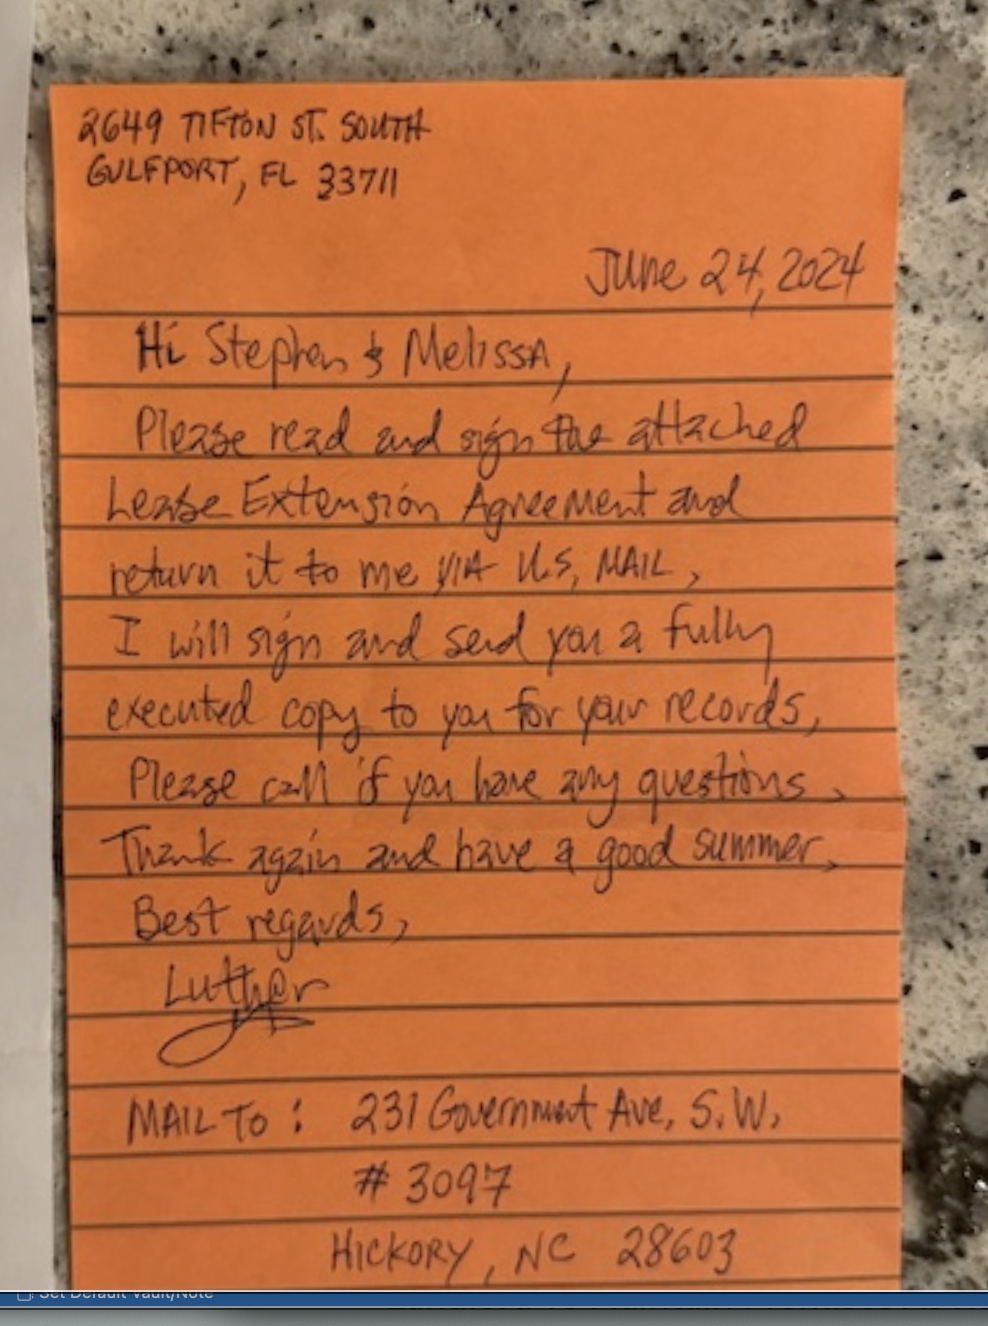 2649 TIFTON ST. SOUTH
GULFPORT, FL 33711
June 24, 2024
Hi Stephen & Melissa,
Please read and sign the attached
Lease Extension Agreement and
return it to me VIA U.S. MAIL.
I will sign and send you a fully
executed copy to you for your records.
Please call if you have any questions.
Thank again and have a good summer.
Best regards,
Luther
MAIL TO : 231 Government Ave, S.W.
# 3097
HICKORY, NC 28603
Set Default Vault/Note